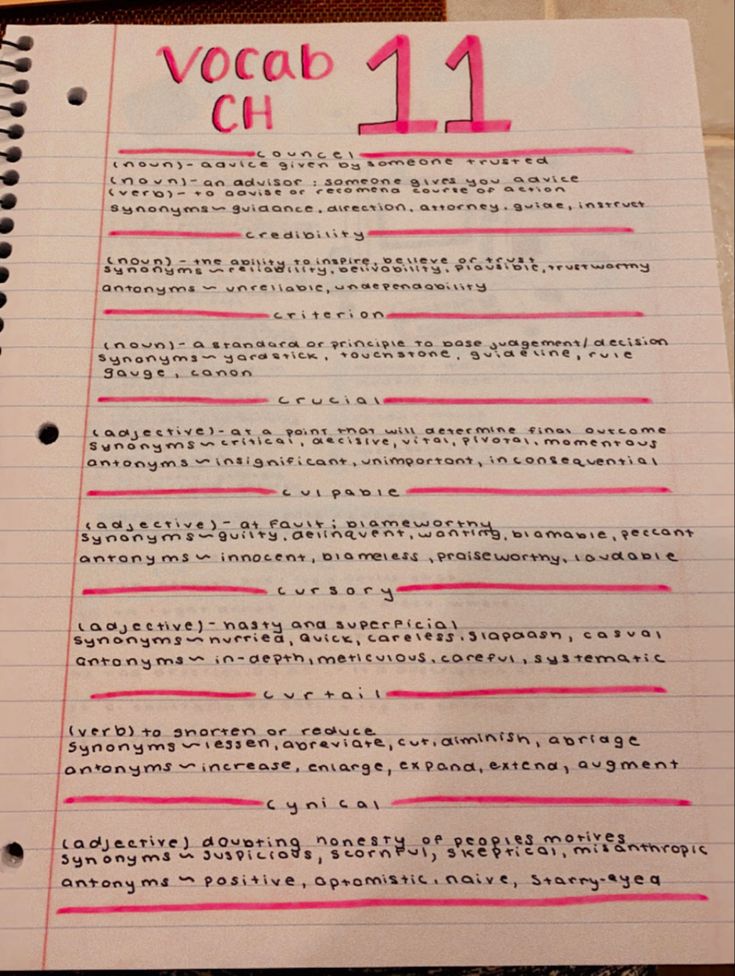 Vocab 11
CH
councel
(noun)- advice given by someone trusted
(noun)- an advisor ; someone gives you advice
(verb)- to advise or recomend course of action
synonyms~ guidance, direction, attorney, guide, instruct
credibility
(noun)- the ability to inspire, believe or trust
synonyms~ reliability, belivability, plausible, trustworthy
antonyms~ unreliable, undependability
criterion
(noun)- a standard or principle to base judgement/decision
synonyms~ yardstick, touchstone, guideline, rule
gauge, canon
crucial
(adjective)- at a point that will determine final outcome
synonyms~ critical, decisive, vital, pivotal, momentous
antonyms~ insignificant, unimportant, inconsequential
culpable
(adjective)- at fault ; blameworthy
synonyms~ guilty, delinquent, wanting, blamable, peccant
antonyms~ innocent, blameless, praiseworthy, laudable
cursory
(adjective)- hasty and superficial
synonyms~ hurried, quick, careless, slapdash, casual
antonyms~ in-depth, meticulous, careful, systematic
curtail
(verb) to shorten or reduce
synonyms~ lessen, abreviate, cut, diminish, abridge
antonyms~ increase, enlarge, expand, extend, augment
cynical
(adjective) doubting honesty of peoples motives
synonyms~ suspicious, scornful, skeptical, misanthropic
antonyms~ positive, optomistic, naive, starry-eyed